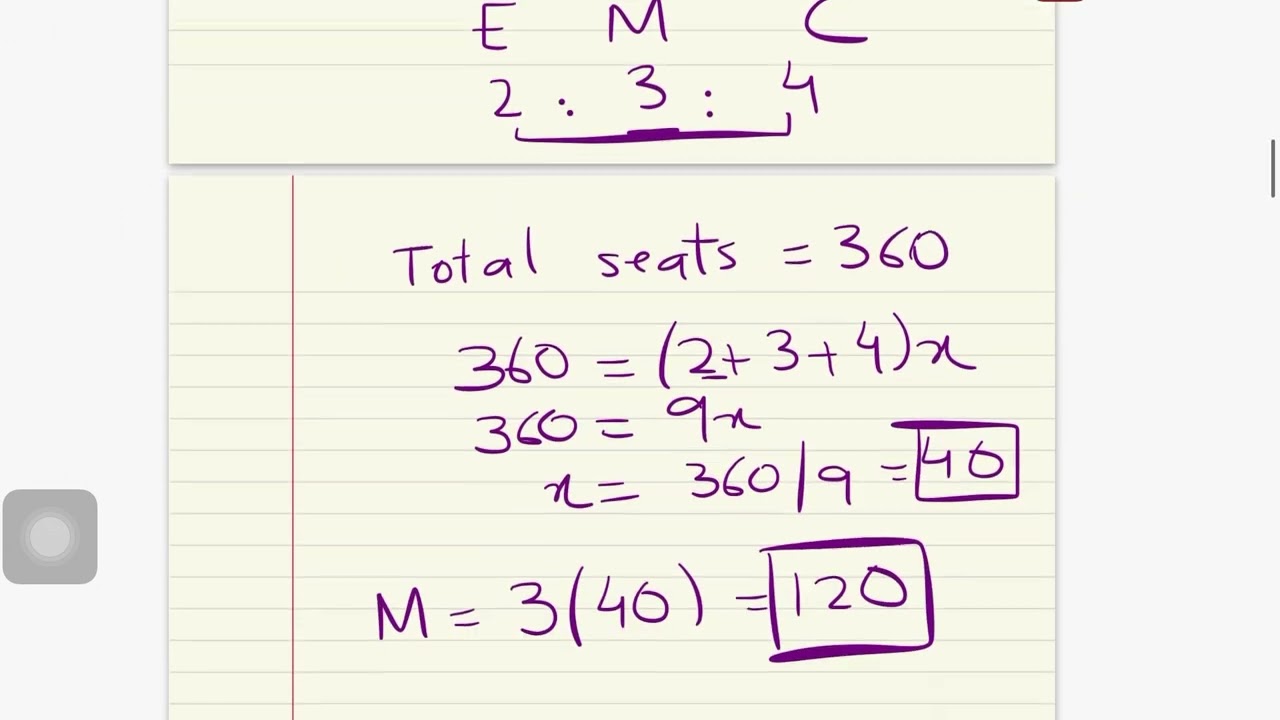 E M C
2 : 3 : 4
Total seats = 360
360 = (2+3+4)x
360 = 9x
x = 360/9 = 40
M = 3(40) = 120